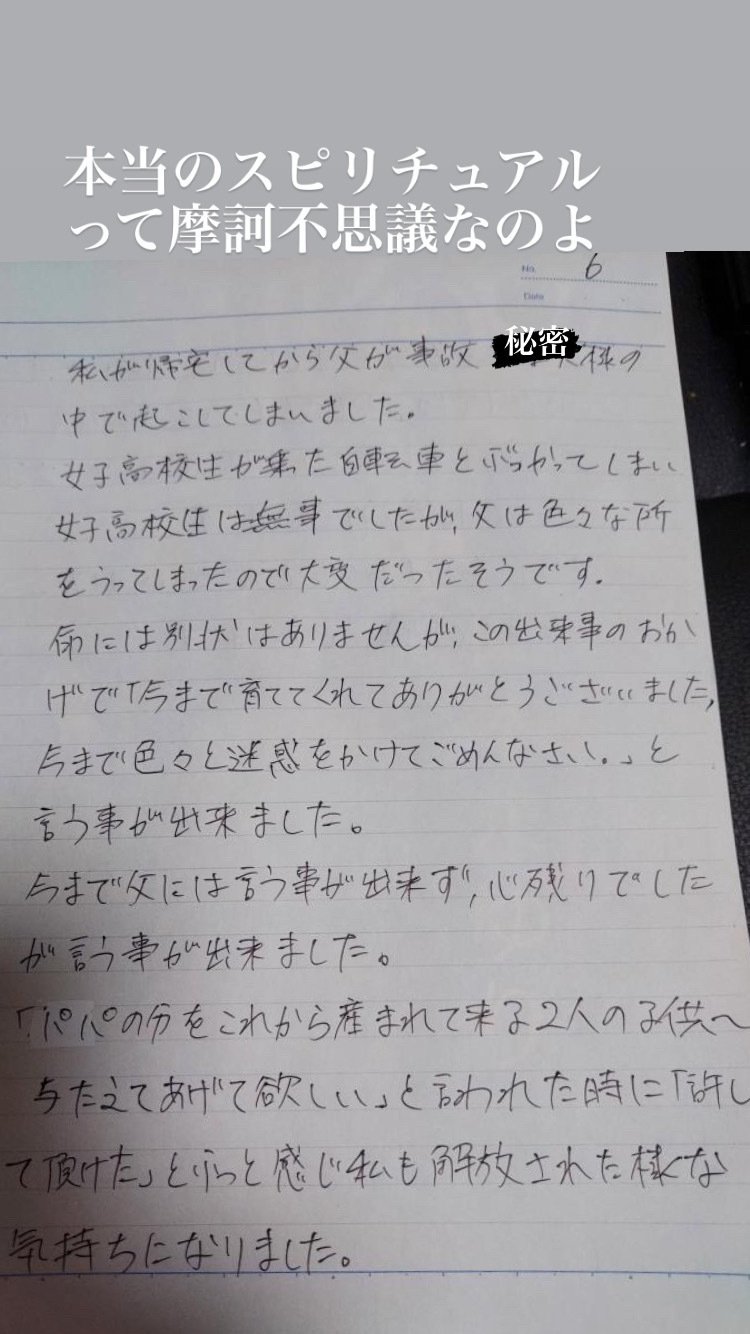 本当のスピリチュアル
って摩訶不思議なのよ
No. 6
Date
私が帰宅してから父が事故 秘密 様の
中で起こしてしまいました。
女子高校生が乗った自転車とぶつかってしまい
女子高校生は無事でしたが、父は色々な所
をうってしまったので大変だったそうです.
命には別状はありませんが、この出来事のおか
げで「今まで育ててくれてありがとうございました,
今まで色々と迷惑をかけてごめんなさい.」と
言う事が出来ました。
今まで父には言う事が出来ず、心残りでした
が言う事が出来ました。
「パパの分をこれから産まれて来る2人の子供へ
与たえてあげて欲しい」と言われた時に「許し
て頂けた」とふっと感じ私も解放された様な
気持ちになりました。